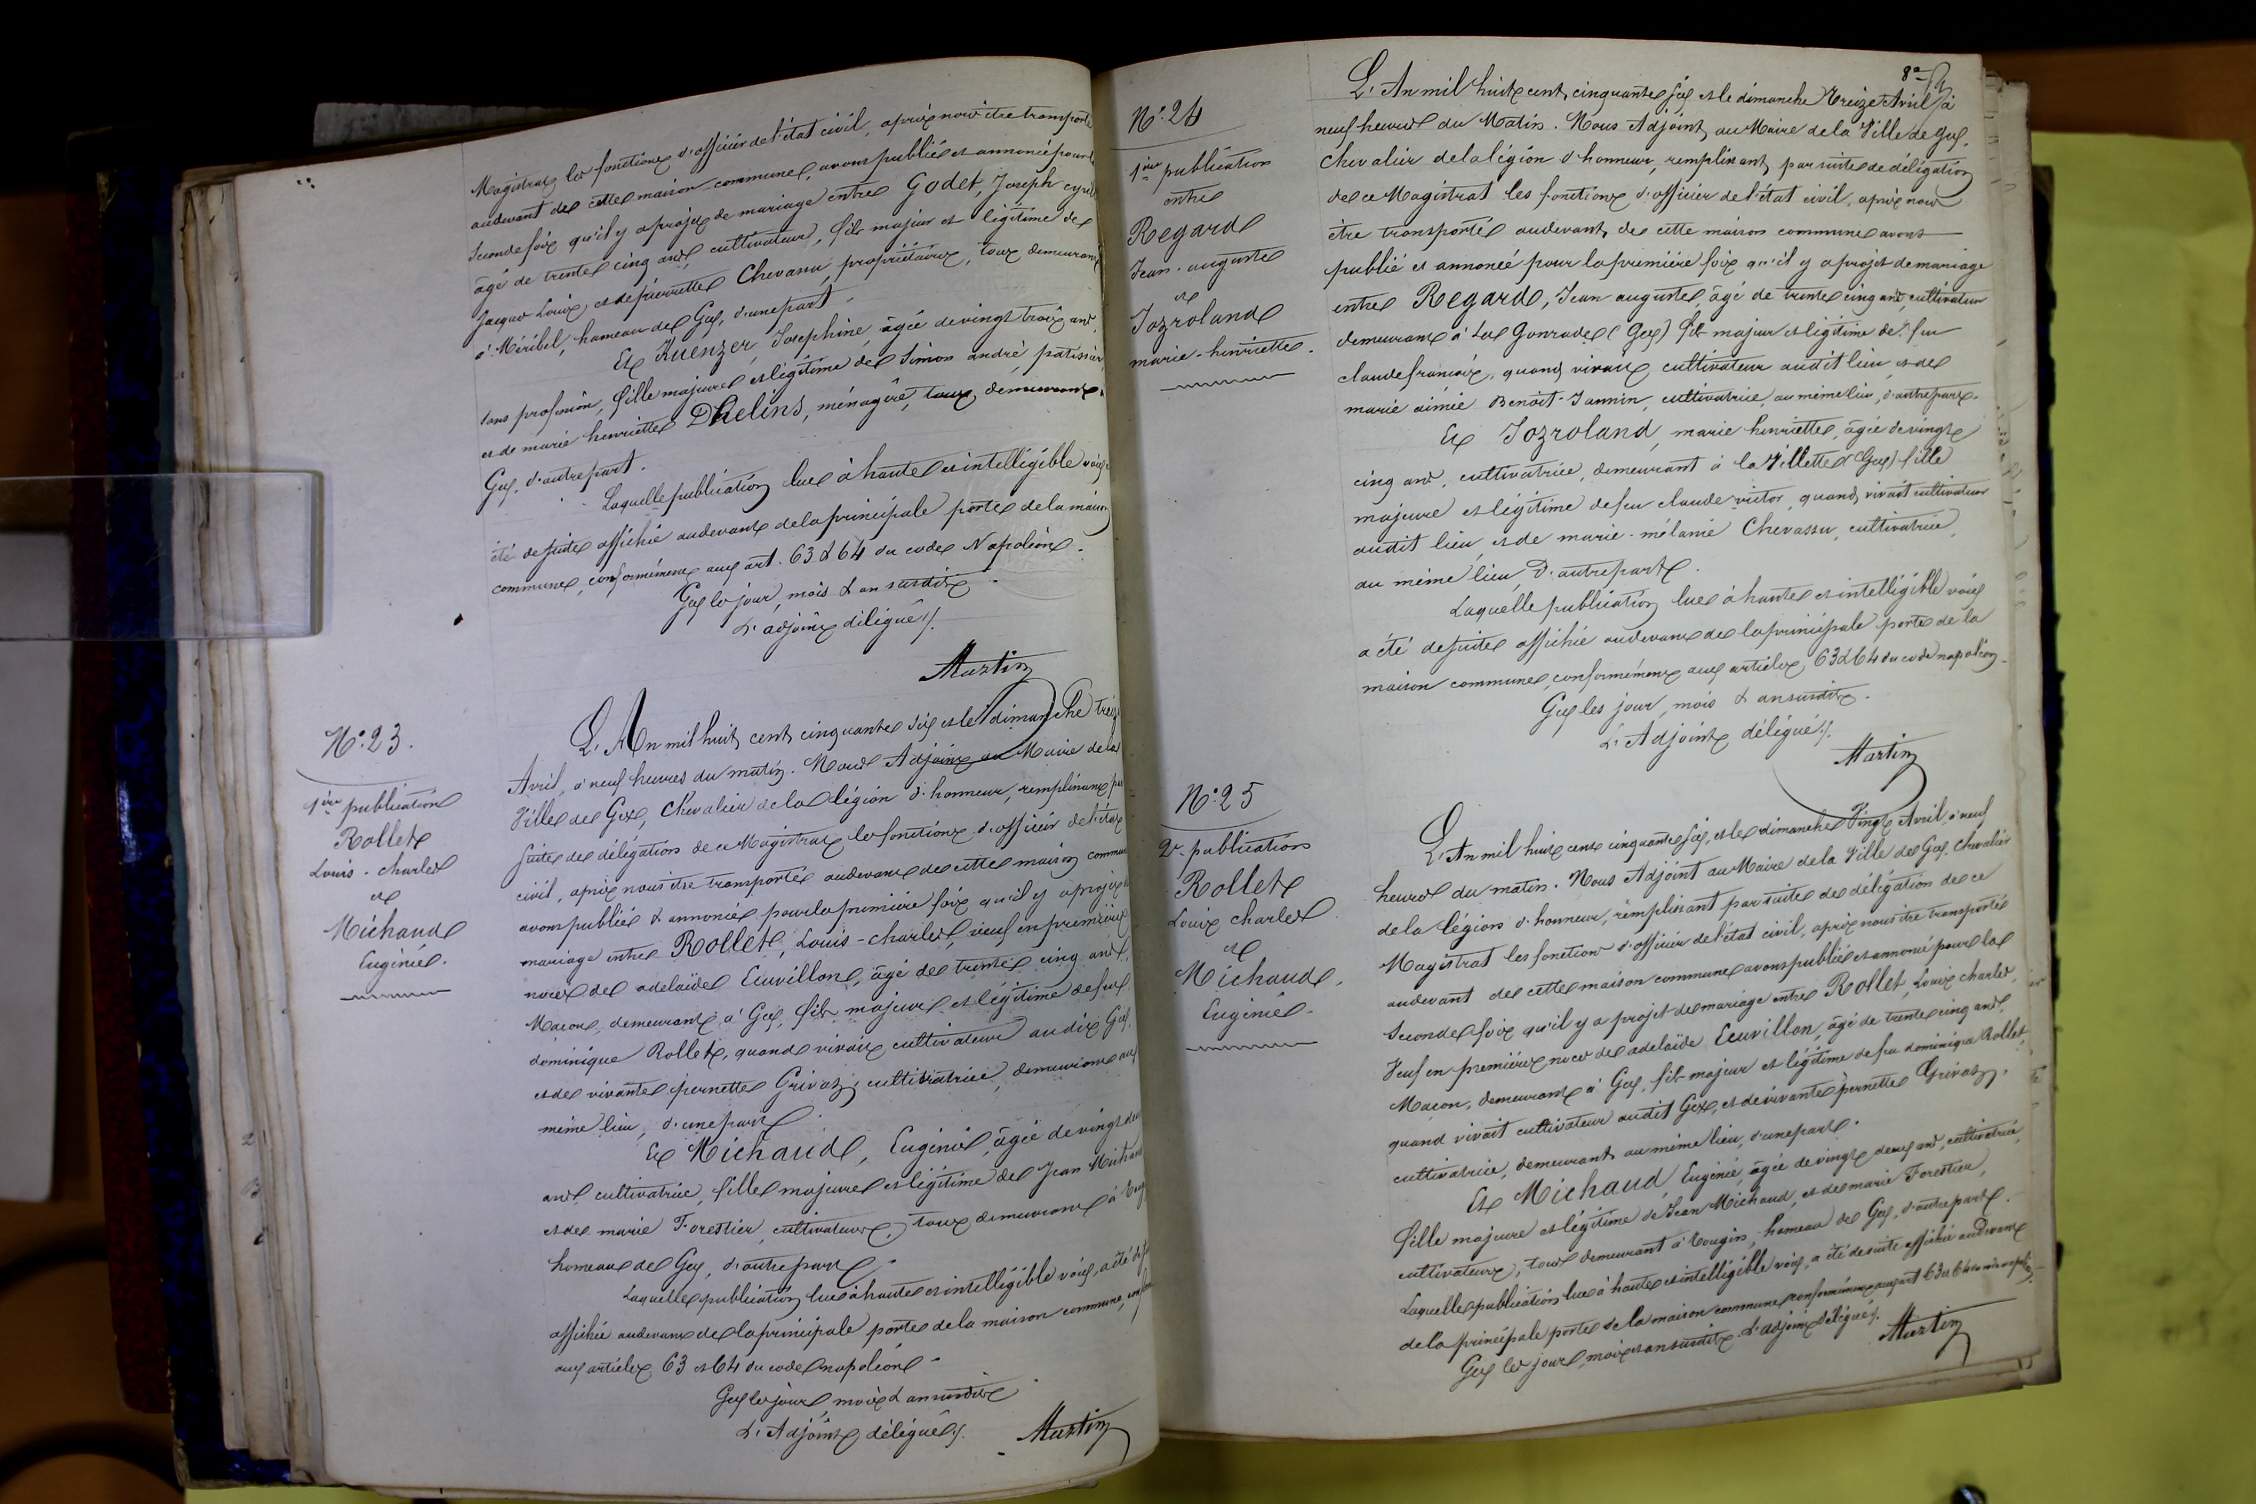 Magistrat les fonctions d'officier de l'état civil, après nous être transporté
audevant de cette maison commune, avons publié et annoncé pour la
seconde fois qu'il y a projet de mariage entre Godet, Joseph
âgé de trente cinq ans, cultivateur, fils majeur et légitime de
Jacques Louis, et de pierrette Chevassu, propriétaires, tous demeurant
à Miribel, hameau de Gex, d'une part.
Et Kuenzer, Josephine, âgée de vingt trois ans,
sans profession, fille majeure et légitime de Simon andré patissier,
et de marie henriette Dhelins, ménagère, tous demeurant à
Gex, d'autre part.
Laquelle publication lue à haute et intelligible voix, a
été de suite affichée audevant de la principale porte de la maison
commune, conformément aux art. 63 & 64 du code Napoléon.
Gex les jour, mois & an susdits.
L'adjoint délégué /.
Martin
N° 23.
1ère publication
Rollet
Louis-charles
et
Michaud
Eugénie.
L'An mil huit cent cinquante six et le dimanche treize
Avril, à neuf heures du matin. Nous Adjoint au Maire de la
Ville de Gex, Chevalier de la légion d'honneur, remplissant par
suite de délégation de ce Magistrat les fonctions d'officier de l'état
civil, après nous être transporté audevant de cette maison commune
avons publié & annoncé pour la première fois qu'il y a projet de
mariage entre Rollet, Louis-charles, veuf en premières
noces de adelaïde Ecuvillon, âgé de trente cinq ans,
Maçon, demeurant à Gex, fils majeur et légitime de feu
dominique Rollet, quand vivait cultivateur audit Gex,
et de vivante pernette Grivaz, cultivatrice, demeurant au
même lieu, d'une part
Et Michaud, Eugénie, âgée de vingt deux
ans cultivatrice, fille majeure et légitime de Jean Michaud
et de marie Forestier, cultivateurs, tous demeurant à Tougin
hameau de Gex, d'autre part.
Laquelle publication lue à haute et intelligible voix, a été de suite
affichée audevant de la principale porte de la maison commune, conformément
aux articles 63 et 64 du code napoléon.
Gex les jour, mois & an susdits
L'Adjoint délégué /.
Martin
8e
N° 24
1ère publication
entre
Regard
Jean-auguste
et
Jozroland
marie-henriette.
L'An mil huit cent cinquante six et le dimanche Treize Avril à
neuf heures du Matin. Nous Adjoint au Maire de la Ville de Gex,
Chevalier de la légion d'honneur, remplissant par suite de délégation
de ce Magistrat les fonctions d'officier de l'état civil, après nous
être transporté audevant de cette maison commune avons
publié et annoncé pour la première fois qu'il y a projet de mariage
entre Regard, Jean auguste, âgé de trente cinq ans, cultivateur
demeurant à (Gex) fils majeur et légitime de feu
claude françois, quand vivait cultivateur audit lieu, et de
marie aimée Benoit-Jannin, cultivatrice, au même lieu, d'autre part.
Et Jozroland, marie henriette, âgée de vingt
cinq ans, cultivatrice, demeurant à la Villette (Gex) fille
majeure et légitime de feu claude victor, quand vivait cultivateur
audit lieu, et de marie-mélanie Chevassu, cultivatrice,
au même lieu, d'autre part.
Laquelle publication lue à haute et intelligible voix
a été de suite affichée audevant de la principale porte de la
maison commune, conformément aux articles 63 & 64 du code napoléon.
Gex les jour, mois & an susdits.
L'Adjoint délégué /.
Martin
N° 25
2e publication
Rollet
Louis charles
et
Michaud,
Eugénie.
L'An mil huit cent cinquante six, et le dimanche Vingt Avril, à neuf
heures du matin. Nous Adjoint au Maire de la Ville de Gex, Chevalier
de la légion d'honneur, remplissant par suite de délégation de ce
Magistrat les fonctions d'officier de l'état civil, après nous être transporté
audevant de cette maison commune avons publié et annoncé pour la
seconde fois qu'il y a projet de mariage entre Rollet, Louis charles,
Veuf en premières noces de adelaïde Ecuvillon, âgé de trente cinq ans,
Maçon, demeurant à Gex, fils majeur et légitime de feu dominique Rollet,
quand vivait cultivateur audit Gex, et de vivante pernette Grivaz,
cultivatrice, demeurant au même lieu, d'une part.
Et Michaud, Eugénie, âgée de vingt deux ans, cultivatrice,
fille majeure et légitime de Jean Michaud, et de marie Forestier,
cultivateurs, tous demeurant à Tougin, hameau de Gex, d'autre part.
Laquelle publication lue à haute et intelligible voix, a été de suite affichée audevant
de la principale porte de la maison commune conformément aux art 63 et 64 du code napoléon.
Gex les jour, mois et an susdits. L'adjoint délégué /.
Martin